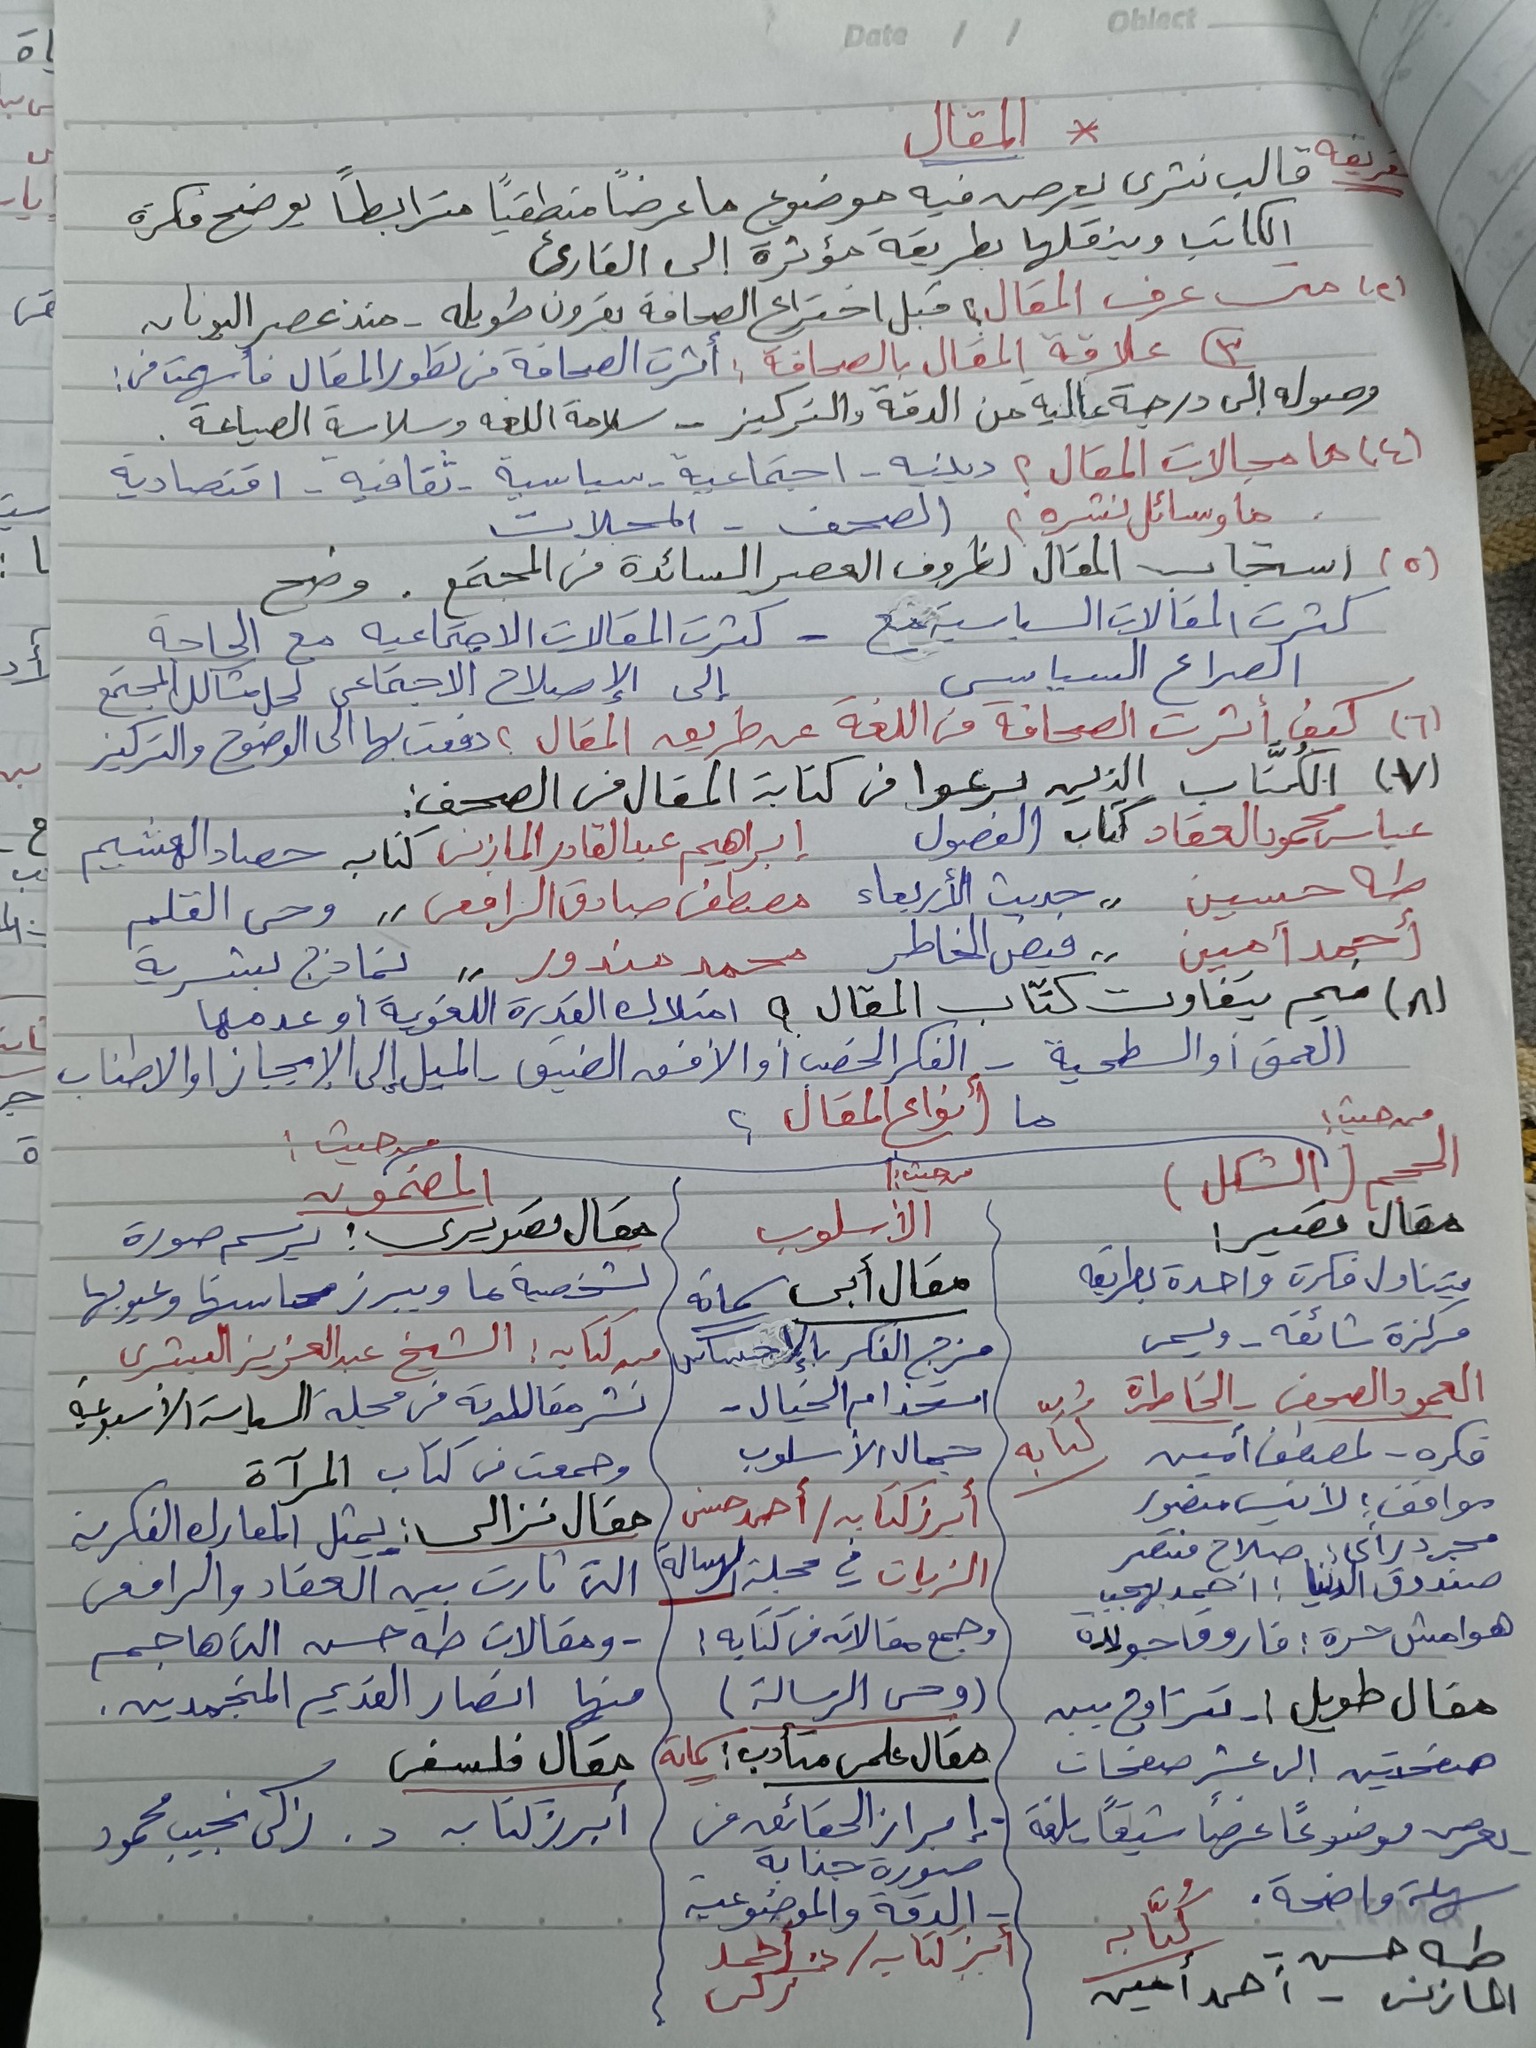 Date / / Object
* المقال
تعريفه قالب نثرى يعرض فيه موضوع ما عرضًا منطقيًا مترابطًا يوضح فكرة
الكاتب وينقلها بطريقة مؤثرة إلى القارئ
(٢) متى عرف المقال؟ قبل اختراع الصحافة بقرون طويله - منذ عصر اليونان
(٣) علاقة المقال بالصحافة: أثرت الصحافة فى تطور المقال فأسهمت فى:
وصوله إلى درجة عالية من الدقة والتركيز - سلامة اللغه وسلاسة الصياغة.
(٤) ما مجالات المقال؟ دينيه - اجتماعية - سياسية - ثقافية - اقتصادية
. ما وسائل نشره؟ الصحف - المجلات
(٥) استجاب المقال لظروف العصر السائدة فى المجتمع. وضح
كثرت المقالات السياسية مع - كثرت المقالات الاجتماعيه مع الحاجة
الصراع السياسى إلى الإصلاح الاجتماعى لحل مشاكل المجتمع
(٦) كيف أثرت الصحافة فى اللغة عن طريق المقال؟ دفعت بها الى الوضوح والتركيز
(٧) الكُتَّاب الذين برعوا فى كتابة المقال فى الصحف:
عباس محمود العقاد كتاب الفصول إبراهيم عبدالقادر المازنى كتاب حصاد الهشيم
طه حسين ,, حديث الأربعاء مصطفى صادق الرافعى ,, وحى القلم
أحمد أمين ,, فيض الخاطر محمد مندور ,, نماذج بشرية
(٨) فيم يتفاوت كتّاب المقال؟ امتلاك القدرة اللغوية أو عدمها
العمق أو السطحية - الفكر الخصب أو الأفق الضيق - الميل إلى الإيجاز أو الاطناب
ما أنواع المقال؟
من حيث:
الحجم (الشكل)
مقال قصير:
يتناول فكرة واحدة بطريقة
مركزة شائقة - ويسمى
العمود الصحفى - الخاطرة كُتّابه
فكره - لمصطفى أمين
مواقف: لأنيس منصور
مجرد رأى: صلاح منتصر
صندوق الدنيا: أحمد بهجت
هوامش حرة: فاروق جويدة
مقال طويل: - تتراوح بين
صفحتين إلى عشر صفحات
يعرض موضوعًا عرضًا شيقًا بلغة
سهلة واضحة.
كُتَّابه
طه حسين -
المازنى - أحمد أمين
من حيث:
الأسلوب
مقال أدبى سماته
مزج الفكر بالإحساس
استخدام الخيال -
جمال الأسلوب
أبرز كتابه / أحمد حسن
الزيات في مجلة الرسالة
وجمع مقالاته فى كتابه:
(وحى الرسالة)
مقال علمى متأدب: سماته
- إبراز الحقائق فى
صورة جذابة
- الدقة والموضوعية
أبرز كتابه / د. أحمد
زكى
من حيث:
المضمون
مقال تصويرى: يرسم صورة
لشخصية ما ويبرز محاسنها وعيوبها
من كتابه: الشيخ عبدالعزيز البشرى
نشر مقالاته فى مجلة السياسة الأسبوعية
وجمعت فى كتاب المرآة
مقال نزالى: يمثل المعارك الفكرية
التى ثارت بين العقاد والرافعى
- ومقالات طه حسين التى هاجم
فيها انصار القديم المتجمدين.
مقال فلسفى
أبرز كتابه د. زكى نجيب محمود